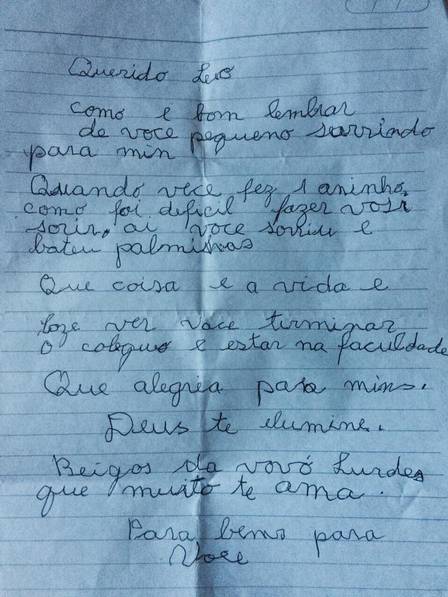 Querido Leo
como e bom lembrar
de voce pequeno sarrindo
para min
Quando vece fez 1 aninho,
como foi deficil fazer vose
sorir, ai voce sorriu e
bateu palminhas
Que coisa e a vida e
hoze ver voce tirminar
o colegeo e estar na faculdade
Que alegria para mins.
Deus te elumine.
Beigos da vovó Lurdes
que muito te ama.
Para bens para
Voce